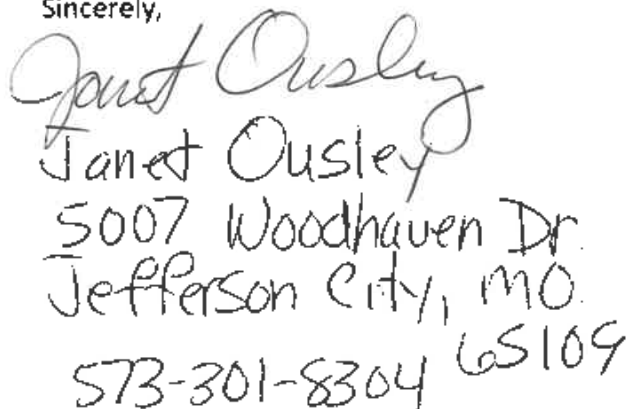 Sincerely,
Janet Ousley
Janet Ousley
5007 Woodhaven Dr.
Jefferson City, MO.
65109
573-301-8304